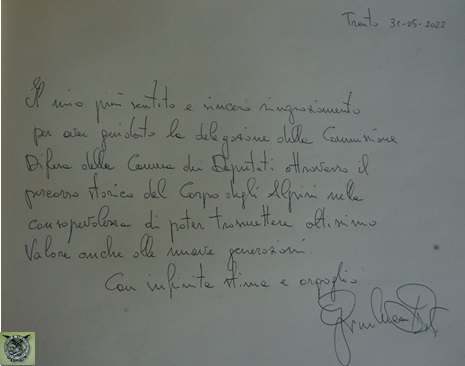 Trento 31-05-2022
Il mio più sentito e sincero ringraziamento
per aver guidato la delegazione della Commissione
Difesa della Camera dei Deputati attraverso il
percorso storico del Corpo degli Alpini nella
consapevolezza di poter trasmettere altissimo
Valore anche alle nuove generazioni.
Con infinita stima e orgoglio